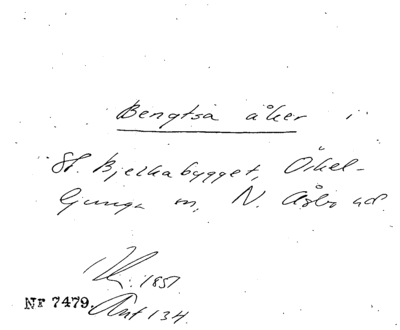 Bengtsa åker i
St. Bjelkabygget, Örkel-
ljunga sn, N. Åsbo hd.
1851
NF 7479. Ant 134